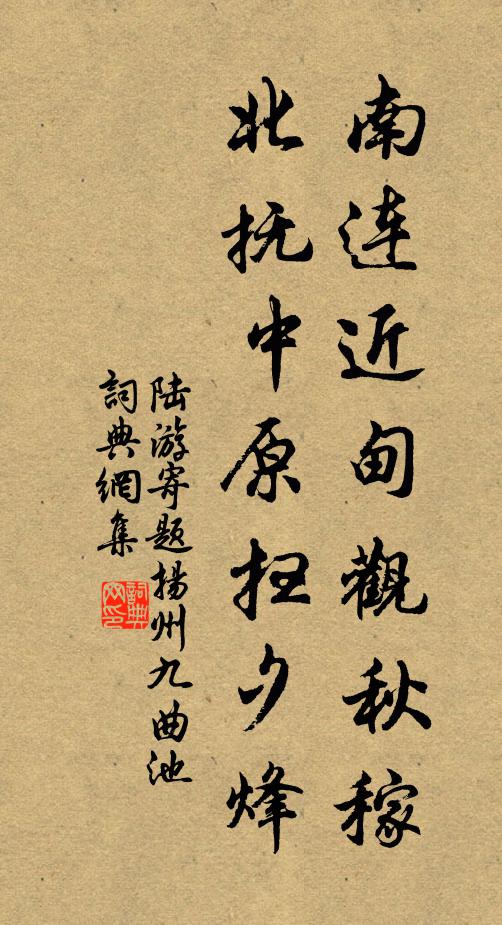 南连近甸觀秋稼
北抚中原扫夕烽
陆游寄题揚州九曲池
詞典網集
詞典网印